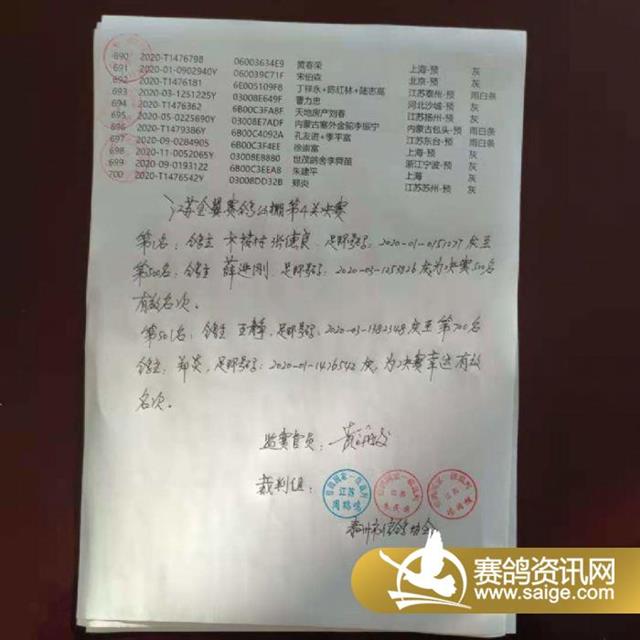 690 2020-T1476798 06003634E9 黄春荣 上海-预 灰
691 2020-01-0902940Y 060039C71F 宋伯森 北京-预 灰
692 2020-T1476181 6E005109F8 丁祥永+陈红林+陆志高 江苏泰州-预 雨白条
693 2020-03-1251225Y 03008E649F 曹力忠 河北沙城-预 灰
694 2020-T1476362 6B00C3FA8F 天地房产刘春 江苏扬州-预 灰
695 2020-05-0225690Y 03008E7ADF 内蒙古塞外金鸵李振宁 内蒙古包头-预 雨白条
696 2020-T1479386Y 6B00C4092A 孔友进+季平富 江苏东台-预 雨白条
697 2020-09-0284905 6B00C3F4EE 徐崇富 上海-预 灰
698 2020-11-0052065Y 03008E8880 世茂鸽舍李舜苗 浙江宁波-预 灰
699 2020-09-0193122 6B00C3EEA8 朱建平 上海 灰
700 2020-T1476542Y 03008DD32B 郑炎 江苏苏州-预 灰
江苏金翼赛鸽公棚第4关决赛
第1名：鸽主 张德良，足环号码：2020-01-0151277 灰至
第500名：鸽主 薛进刚，足环号码：2020-03-1253926 灰为决赛500名
有效名次。
第501名，鸽主 王静，足环号码：2020-03-1382348 灰至第700名
鸽主：郑炎，足环号码：2020-01-1476542 灰，为决赛幸运有效
名次。
监赛官员：
裁判组：
江苏
江苏
江苏
泰州市信鸽协会
赛鸽资讯网
www.saige.com